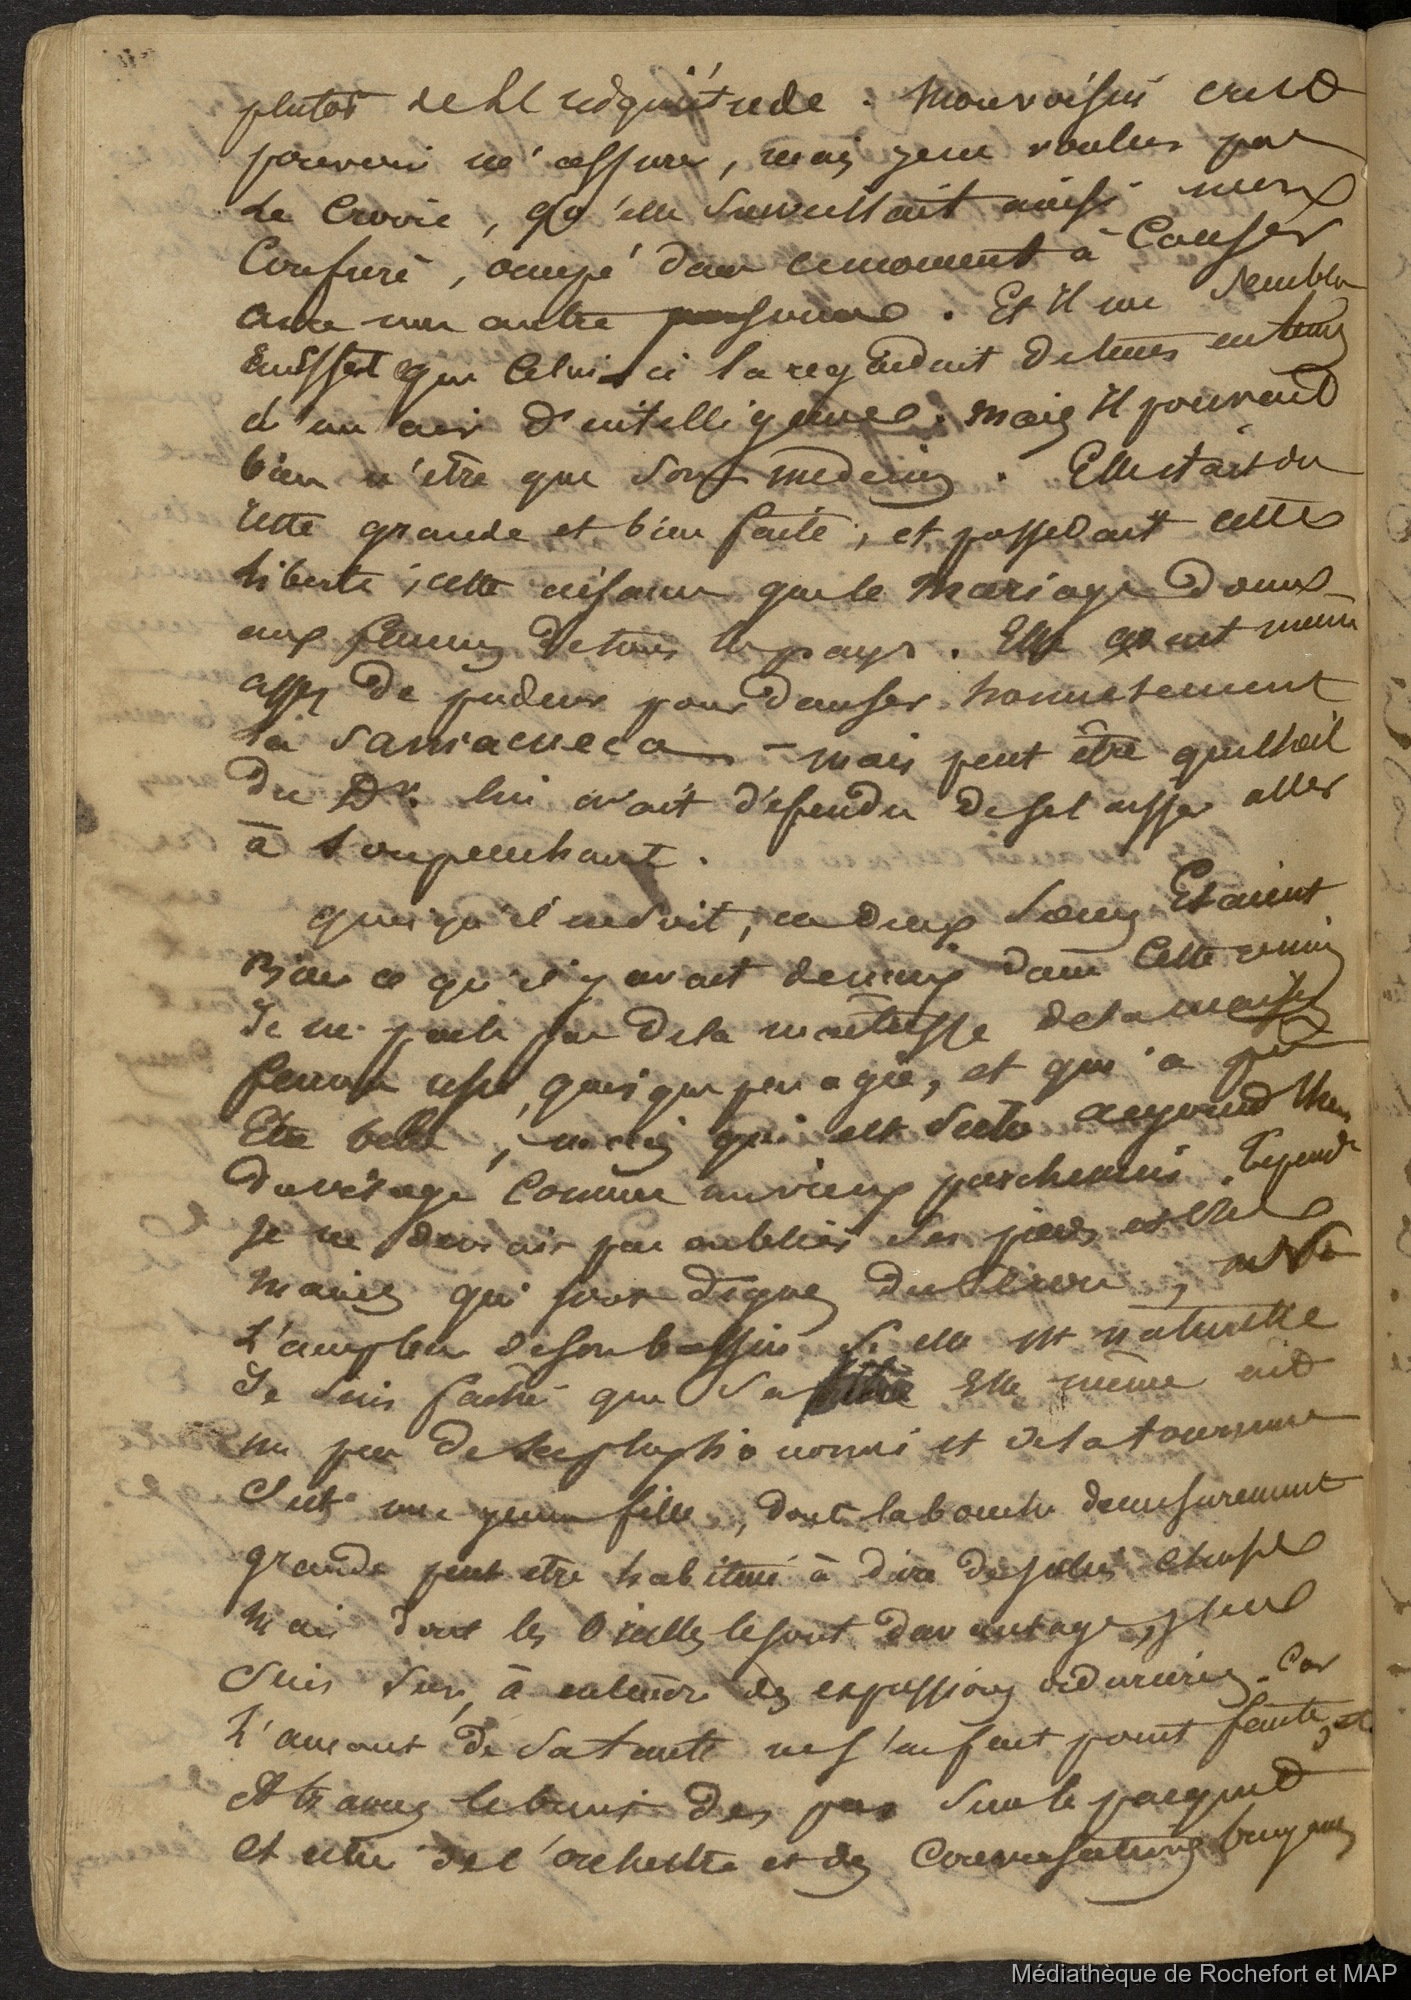 plutôt de l'inquiétude. Mon voisin crut
pouvoir m'assurer, mais je ne voulus pas
le croire, qu'elle surveillait ainsi mon
Confrère, occupé dans ce moment à Causer
avec une autre personne. Et il me sembla
en effet que Celui-ci la regardait de tems en tems
d'un air d'intelligence. Mais il pouvait
bien n'être que son medecin. Elle était du
reste grande et bien faite, et possedait cette
liberté, cette aisance que le Mariage donne
aux femmes de tous les pays. Elle avait même
assez de pudeur pour danser honnetement
la Samacueca – mais peut être que l'œil
du Dr. lui avait défendu de se laisser aller
à son penchant.
quoiqu'il en soit, ces deux sœurs Etaient
bien ce qu'il y avait de mieux dans Cette réunion
Je ne parle pas de la maitresse de la maison
femme usée, quoique peu agée, et qui a pu
Etre belle, mais qui est seche aujourd'hui
du visage Comme un vieux parchemin. Cependt
je ne devrais pas oublier ses pieds et ses
mains qui sont dignes du Pérou, ni
L'ampleur de son bassin si elle est naturelle
Je suis faché que sa Elle même ait
un peu de la et de la tournure
C'est une jeune fille, dont la bouche demesurement
grande peut etre habituée à dire de jolies choses
Mais dont les Oreilles le sont davantage, j'en
suis sur, à entendre des expressions ordurieres. Car
L'amant de sa tante ne s'en fait point faute, et
A travers le bruit des pas sur le parquet
et celui de l'orchestre et des Conversations bruyantes
Médiathèque de Rochefort et MAP